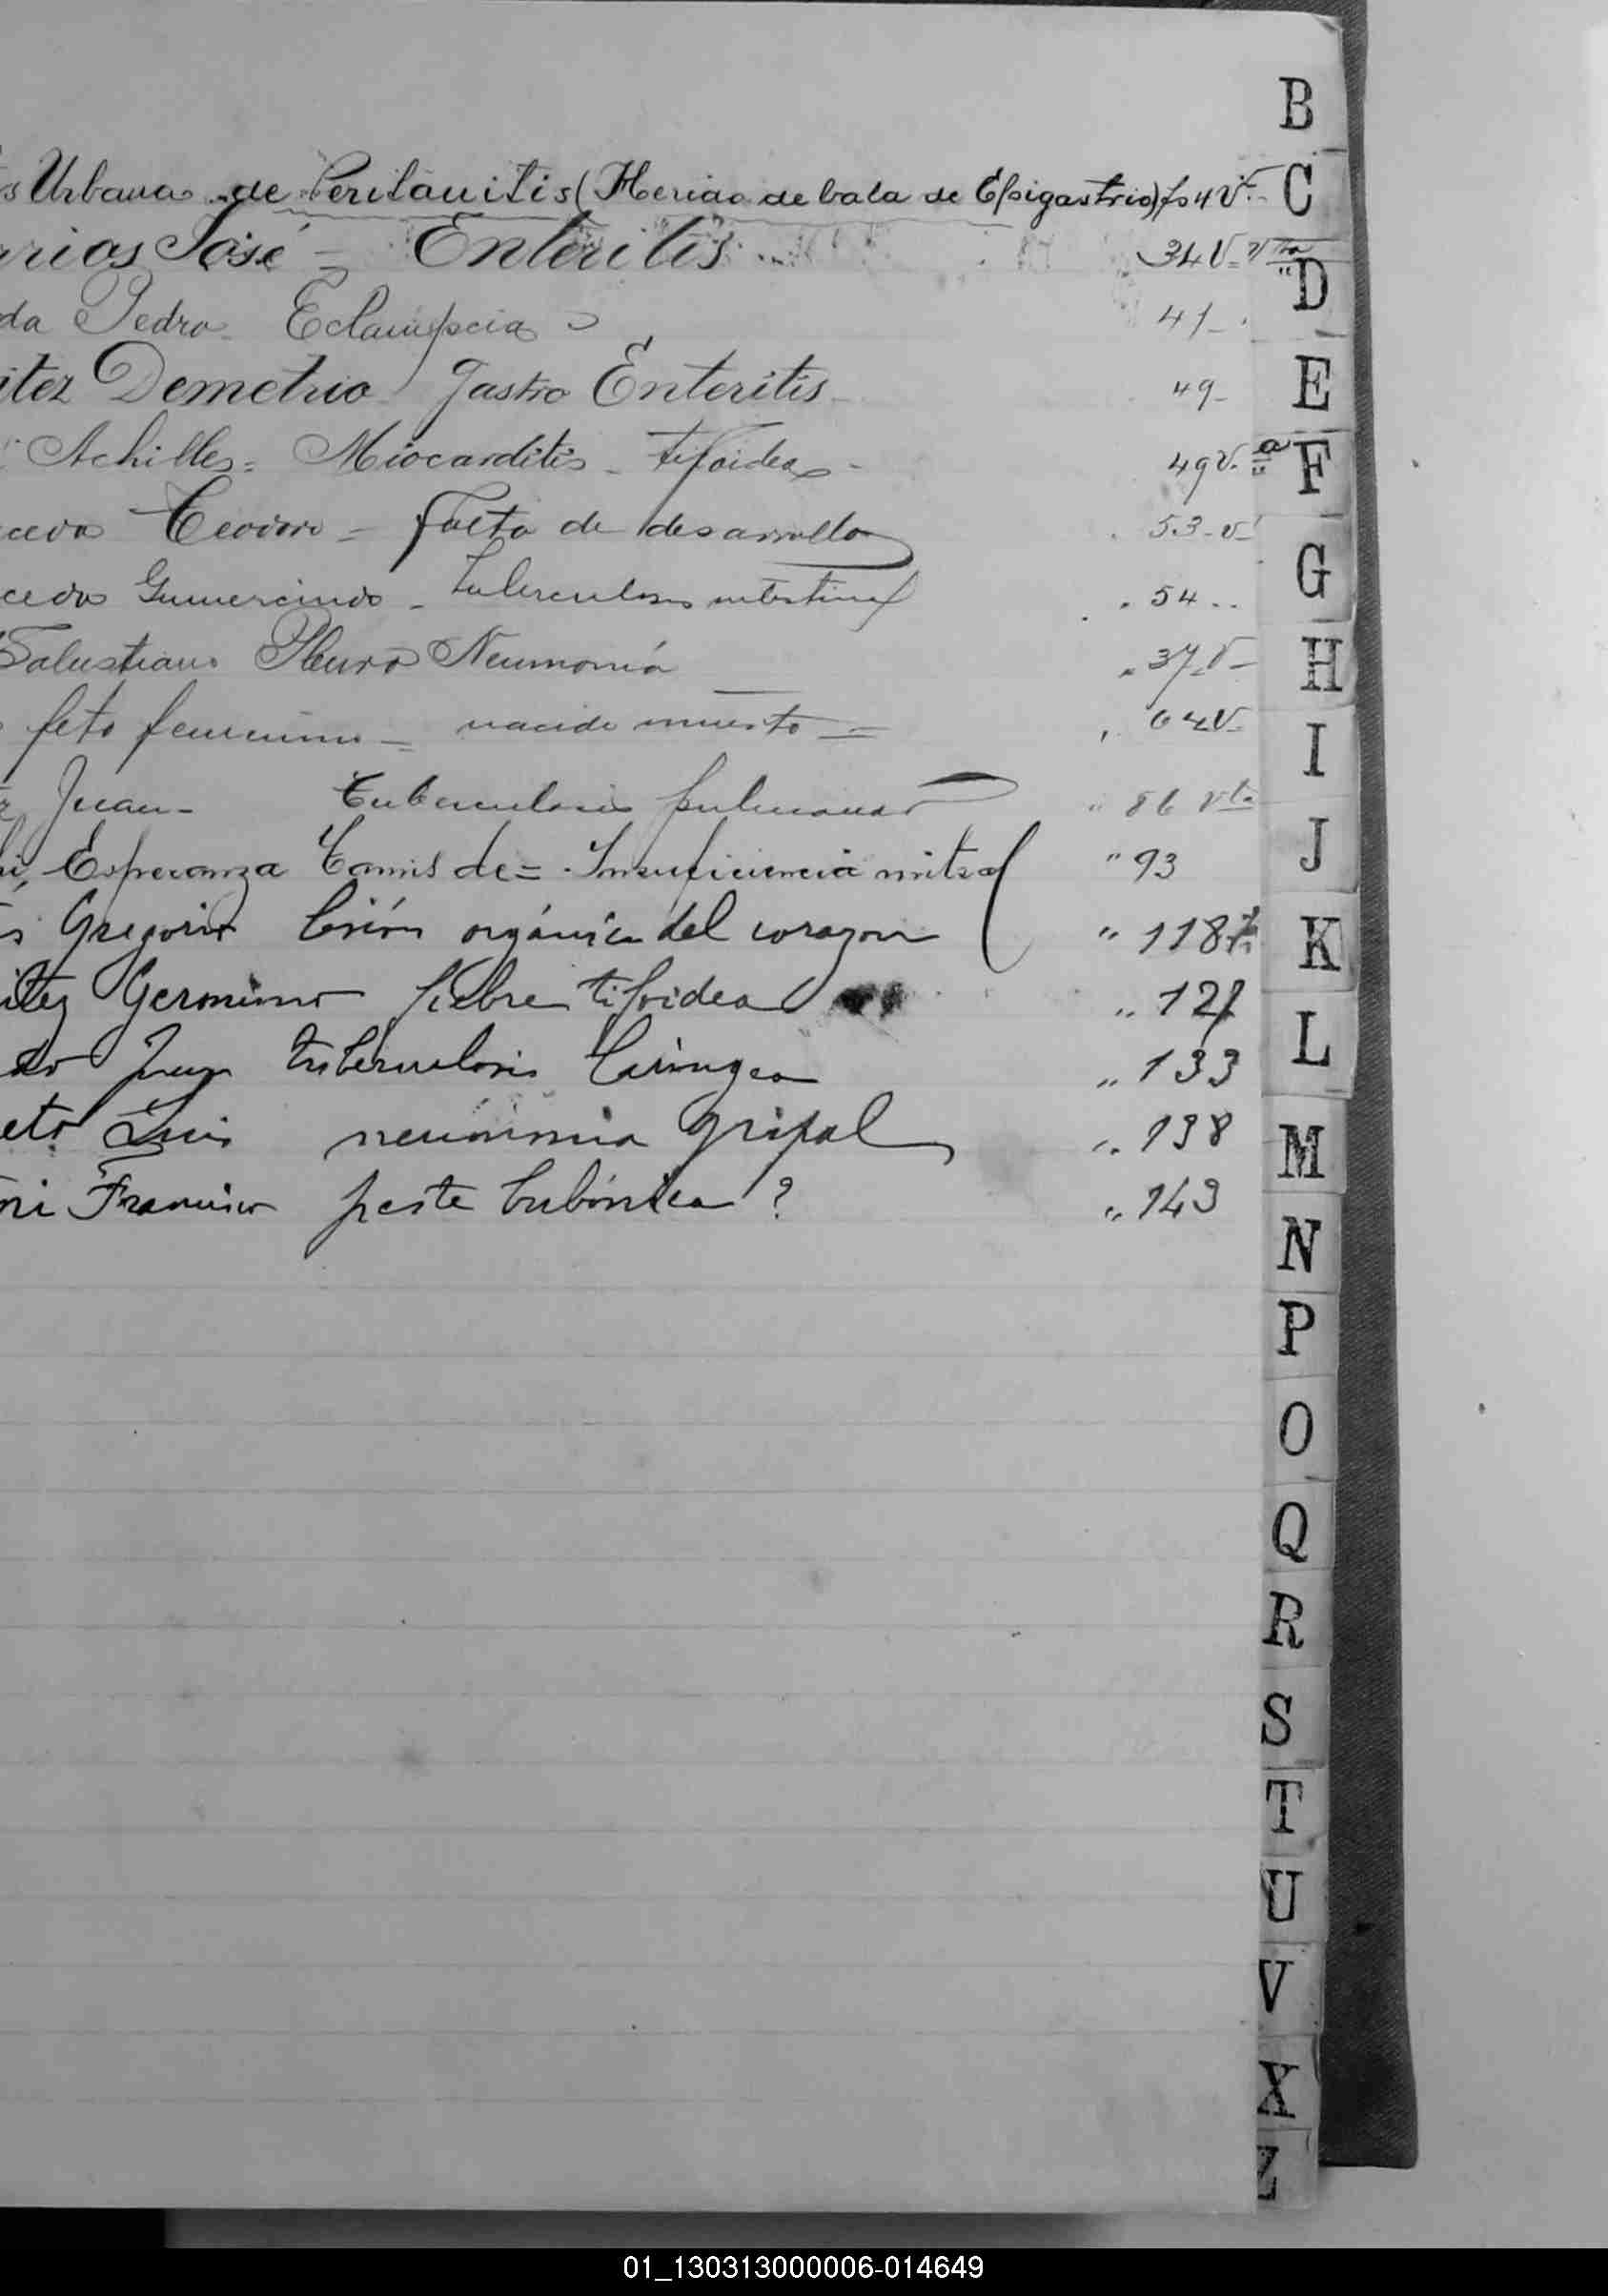 s Urbana de Peritanitis (Herida de bala de Epigastrio) fo 4 V.
rrios José = Enteritis 34 V. vta
da Pedro Eclampcia 41
itez Demetrio Gastro Enteritis 49
Achilles = Miocarditis - tifoidea 49 V.
cedo Teodoro - falta de desarrollo 53 v
cedo Gumercindo - tuberculosis intestinal " 54
Salustiano Pleuro Neumonía " 37 V
feto femenino = nacido muerto = " 64 V
Juan - Tuberculosis pulmonar " 86 vta
Esperanza Tamis de = Insuficiencia mitral " 93
s Gregorio lesión orgánica del corazon " 118
itez Geronimo fiebre tifoidea " 121
do Juan tuberculosis laringea " 133
eto Luis neumonia gripal " 138
ni Francisco peste bubónica ? " 143
B
C
D
E
F
G
H
I
J
K
L
M
N
P
O
Q
R
S
T
U
V
X
Z
01_130313000006-014649